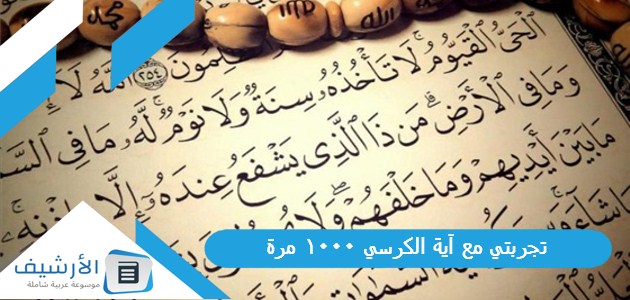 محمد
الله
لِمُونَ ٢٥٤ ٱللَّهُ لَآ إِ
ٱلْحَىُّ ٱلْقَيُّومُ لَا تَأْخُذُهُۥ سِنَةٌ وَلَا نَوْمٌ لَّهُۥ مَا فِى ٱلسَّمَ
وَمَا فِى ٱلْأَرْضِ مَن ذَا ٱلَّذِى يَشْفَعُ عِندَهُۥٓ إِلَّا بِإِذْنِهِۦ
مَا بَيْنَ أَيْدِيهِمْ وَمَا خَلْفَهُمْ وَلَا
شَآءَ
تجربتي مع آية الكرسي ١٠٠٠ مرة
الأرشيف
موسوعة عربية شاملة